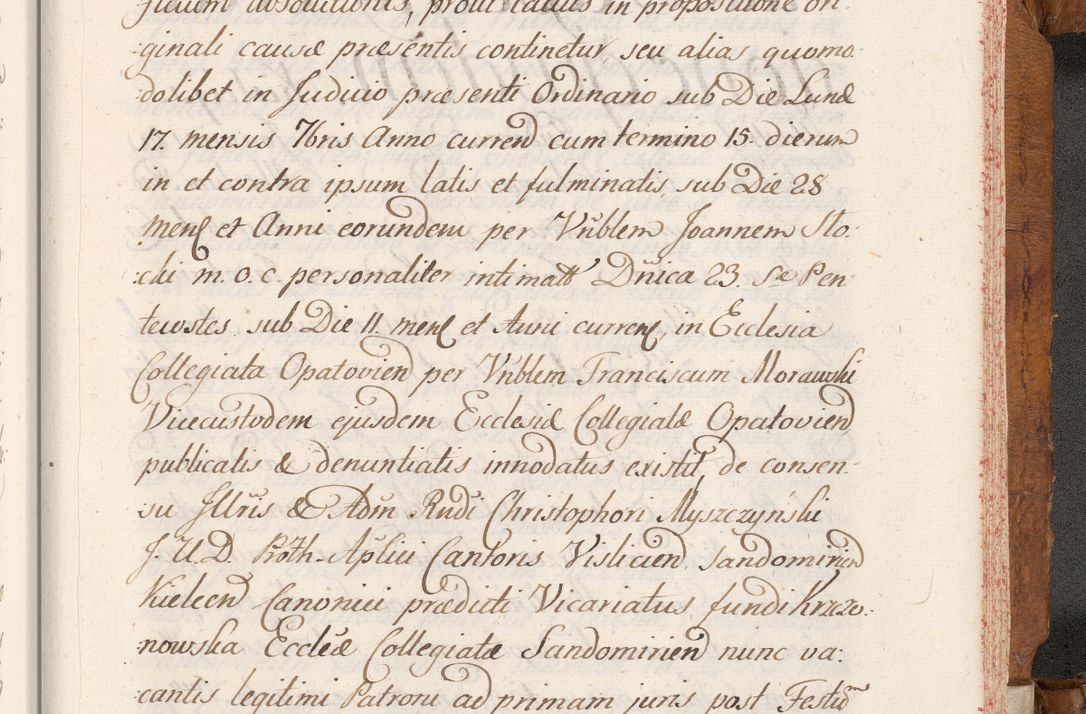 ficium absolutionis, prout latius in propositione ori-
:ginali causæ præsentis continetur, seu alias quomo:
:dolibet in Judicio præsenti Ordinario sub Die Lunæ
17. mensis 7bris Anno curren cum termino 15. dierum
in et contra ipsum latis et fulminatis sub Die 28
Mens et Anni eorundem per Vnblem Joannem Sto:
:cki m. o. c. personaliter intimatt Dnica 23. S̃æ Pen
tecostes sub Die 11. mens et Anni currens, in Ecclesia
Collegiata Opatovien per Vnblem Franciscum Morawski
Vicecustodem ejusdem Ecclesiæ Collegiatæ Opatovien
publicatis & denuntiatis innodatus existit, de consen-
su Jllris & Adm Rndi Christophori Myszczynski
J. U. D. Proth-Aplici Cantoris Vislicien Sandomirien
Kielcen Canonici prædicti Vicariatus fundi Krzczo:
nowska Eccleæ Collegiatæ Sandomirien nunc va:
cantis legitimi Patroni ad primam juris post Festum